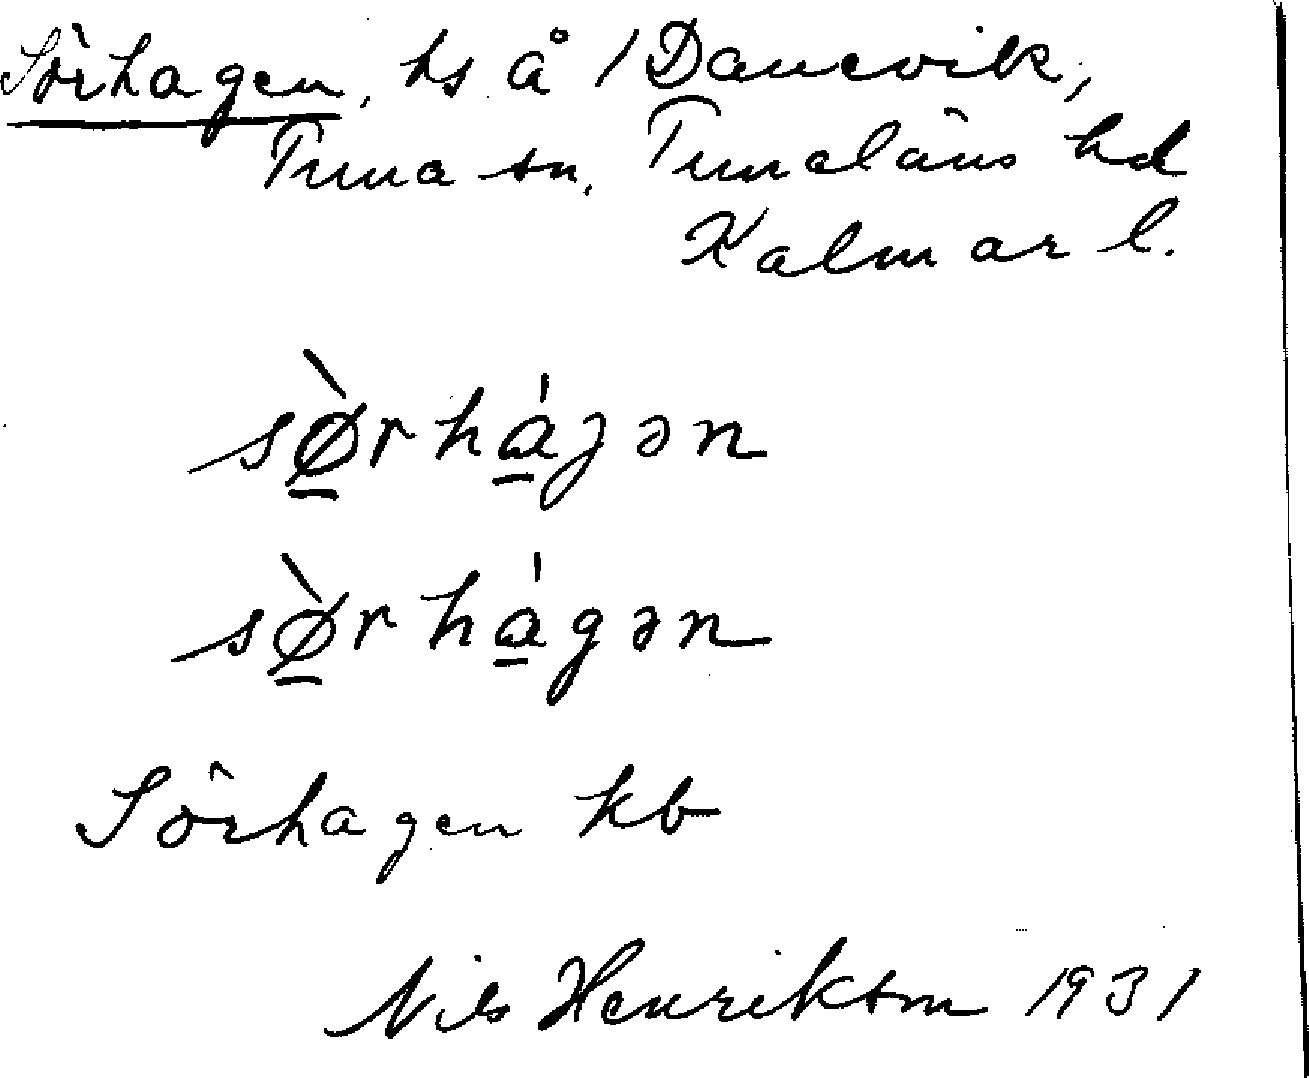 Sörhagen, hs å 1 Danevik,
Tuna sn. Tunaläns hd
Kalmar l.
sø̠̀rhá̠ɡən
sø̠̀rhá̠gən
Sörhagen kb
Nils Henrikson 1931